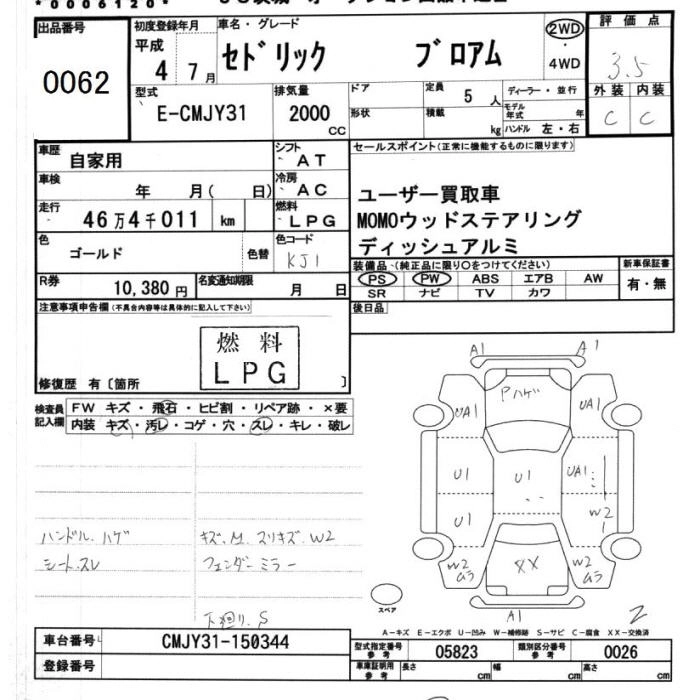 *0006120*
出品番号
0062
初度登録年月
平成
4 7月
車名・グレード
セドリック ブロアム
2WD
・
4WD
評価点
3.5
外装 内装
C C
型式
E-CMJY31
排気量
2000
CC
ドア
形状
定員
5 人
積載
kg
ディーラー・並行
モデル年式 年
ハンドル 左・右
車歴
自家用
シフト
AT
車検
年 月( 日)
冷房
AC
走行
46万4千011 km
燃料
LPG
色
ゴールド
色替
色コード
KJ1
R券
10,380円
名変通知期限
月 日
セールスポイント(正常に機能するものに限ります)
ユーザー買取車
MOMOウッドステアリング
ディッシュアルミ
装備品 (純正品に限り○をつけてください)
PS PW ABS エアB AW
SR ナビ TV カワ
新車保証書
有・無
後日品
注意事項申告欄(不具合内容等は具体的に記入して下さい)
燃料
LPG
修復歴 有〔箇所 〕
検査員
記入欄
FW キズ・飛石・ヒビ割・リペア跡・×要
内装 キズ・汚レ・コゲ・穴・スレ・キレ・破レ
ハンドル ハゲ
シートスレ
キズ、M、スリキズ、W2
フェンダーミラー
下廻り、S
A1 A1
Pハゲ
UA1 UA1
U1 U1 UA1
U1 W2
W2 W2
XX
スペア
A1
A-キズ E-エクボ U-凹み W-補修跡 S-サビ C-腐食 XX-交換済
車台番号
CMJY31-150344
登録番号
型式指定番号
参考
05823
類別区分番号
参考
0026
車庫証明用
参考
長さ cm
幅 cm
高さ cm